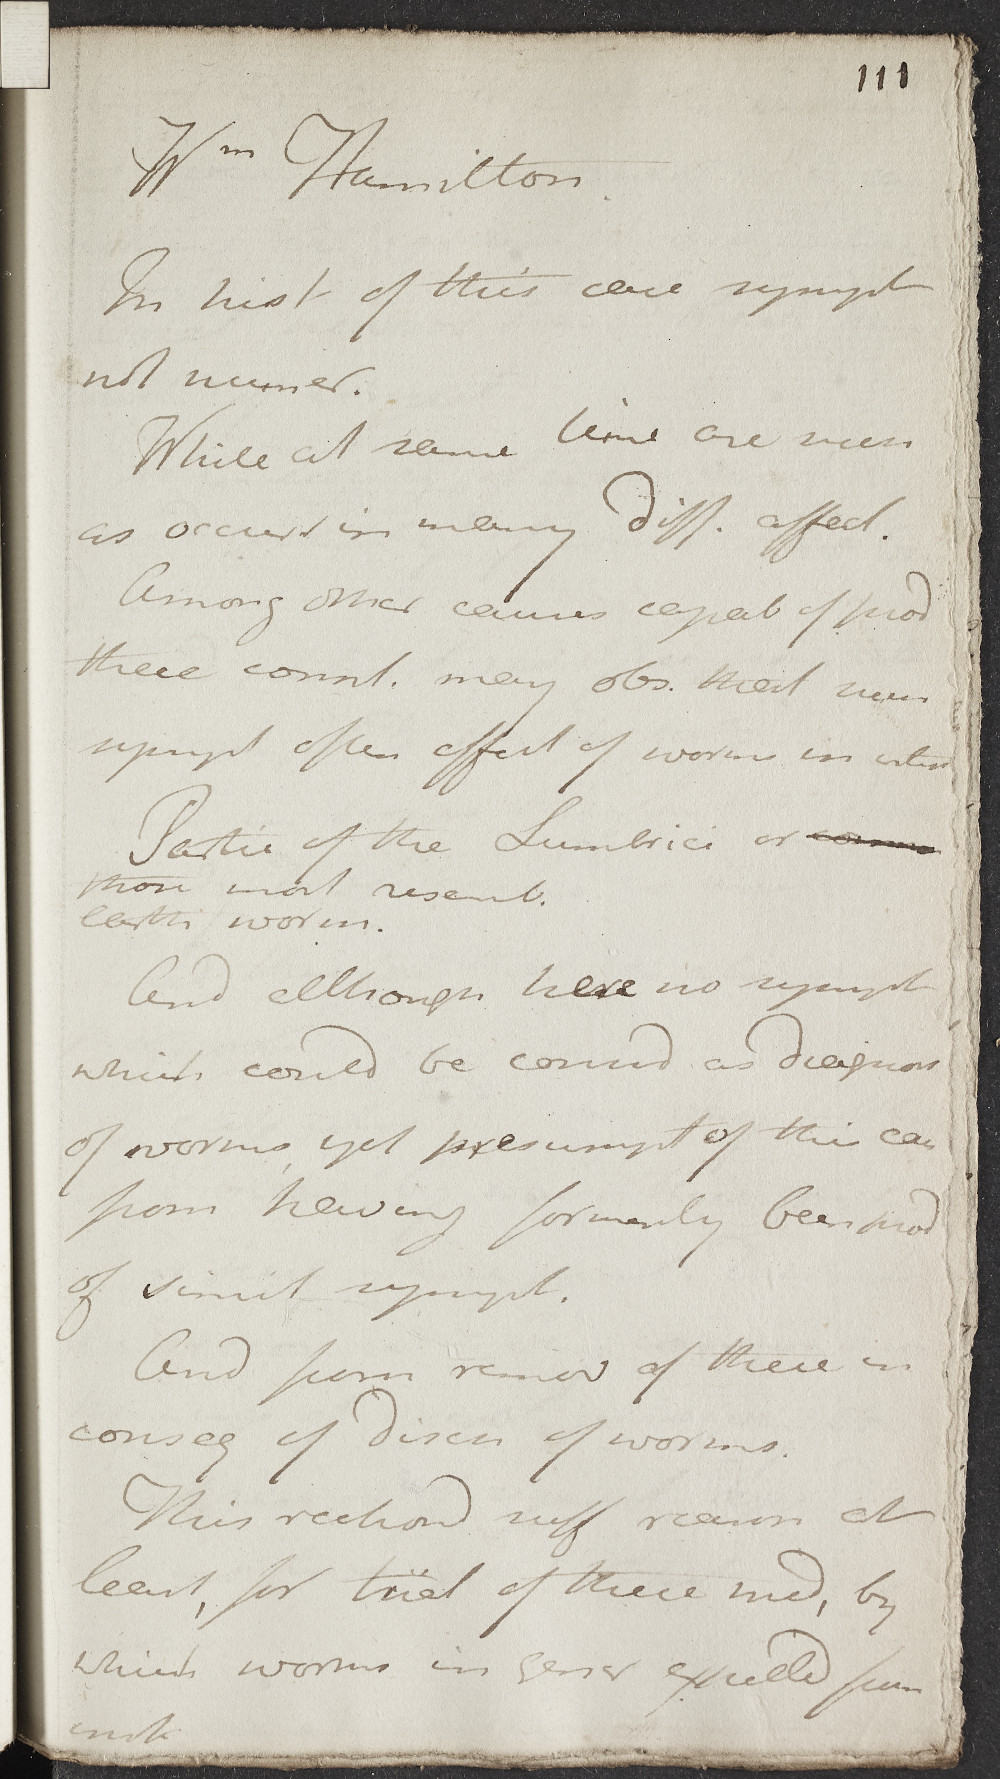 111
Wm Hamilton.
In hist of this case sympt
not numer.
While at same time are such
as occur in many diff. affect.
Among other causes capab of prod
these compl. may obs. that such
sympt often effect of worms in intes
Partic of the Lumbrici or
those most resemb.
earth worm.
And although here no sympt
which could be consid as diagnos
of worms, yet presumpt of this cau
from having formerly been prod
of simil sympt.
And from remov of these in
conseq of disch of worms.
This reckond suff reason at
least, for trial of these med, by
which worms in gener expelld from